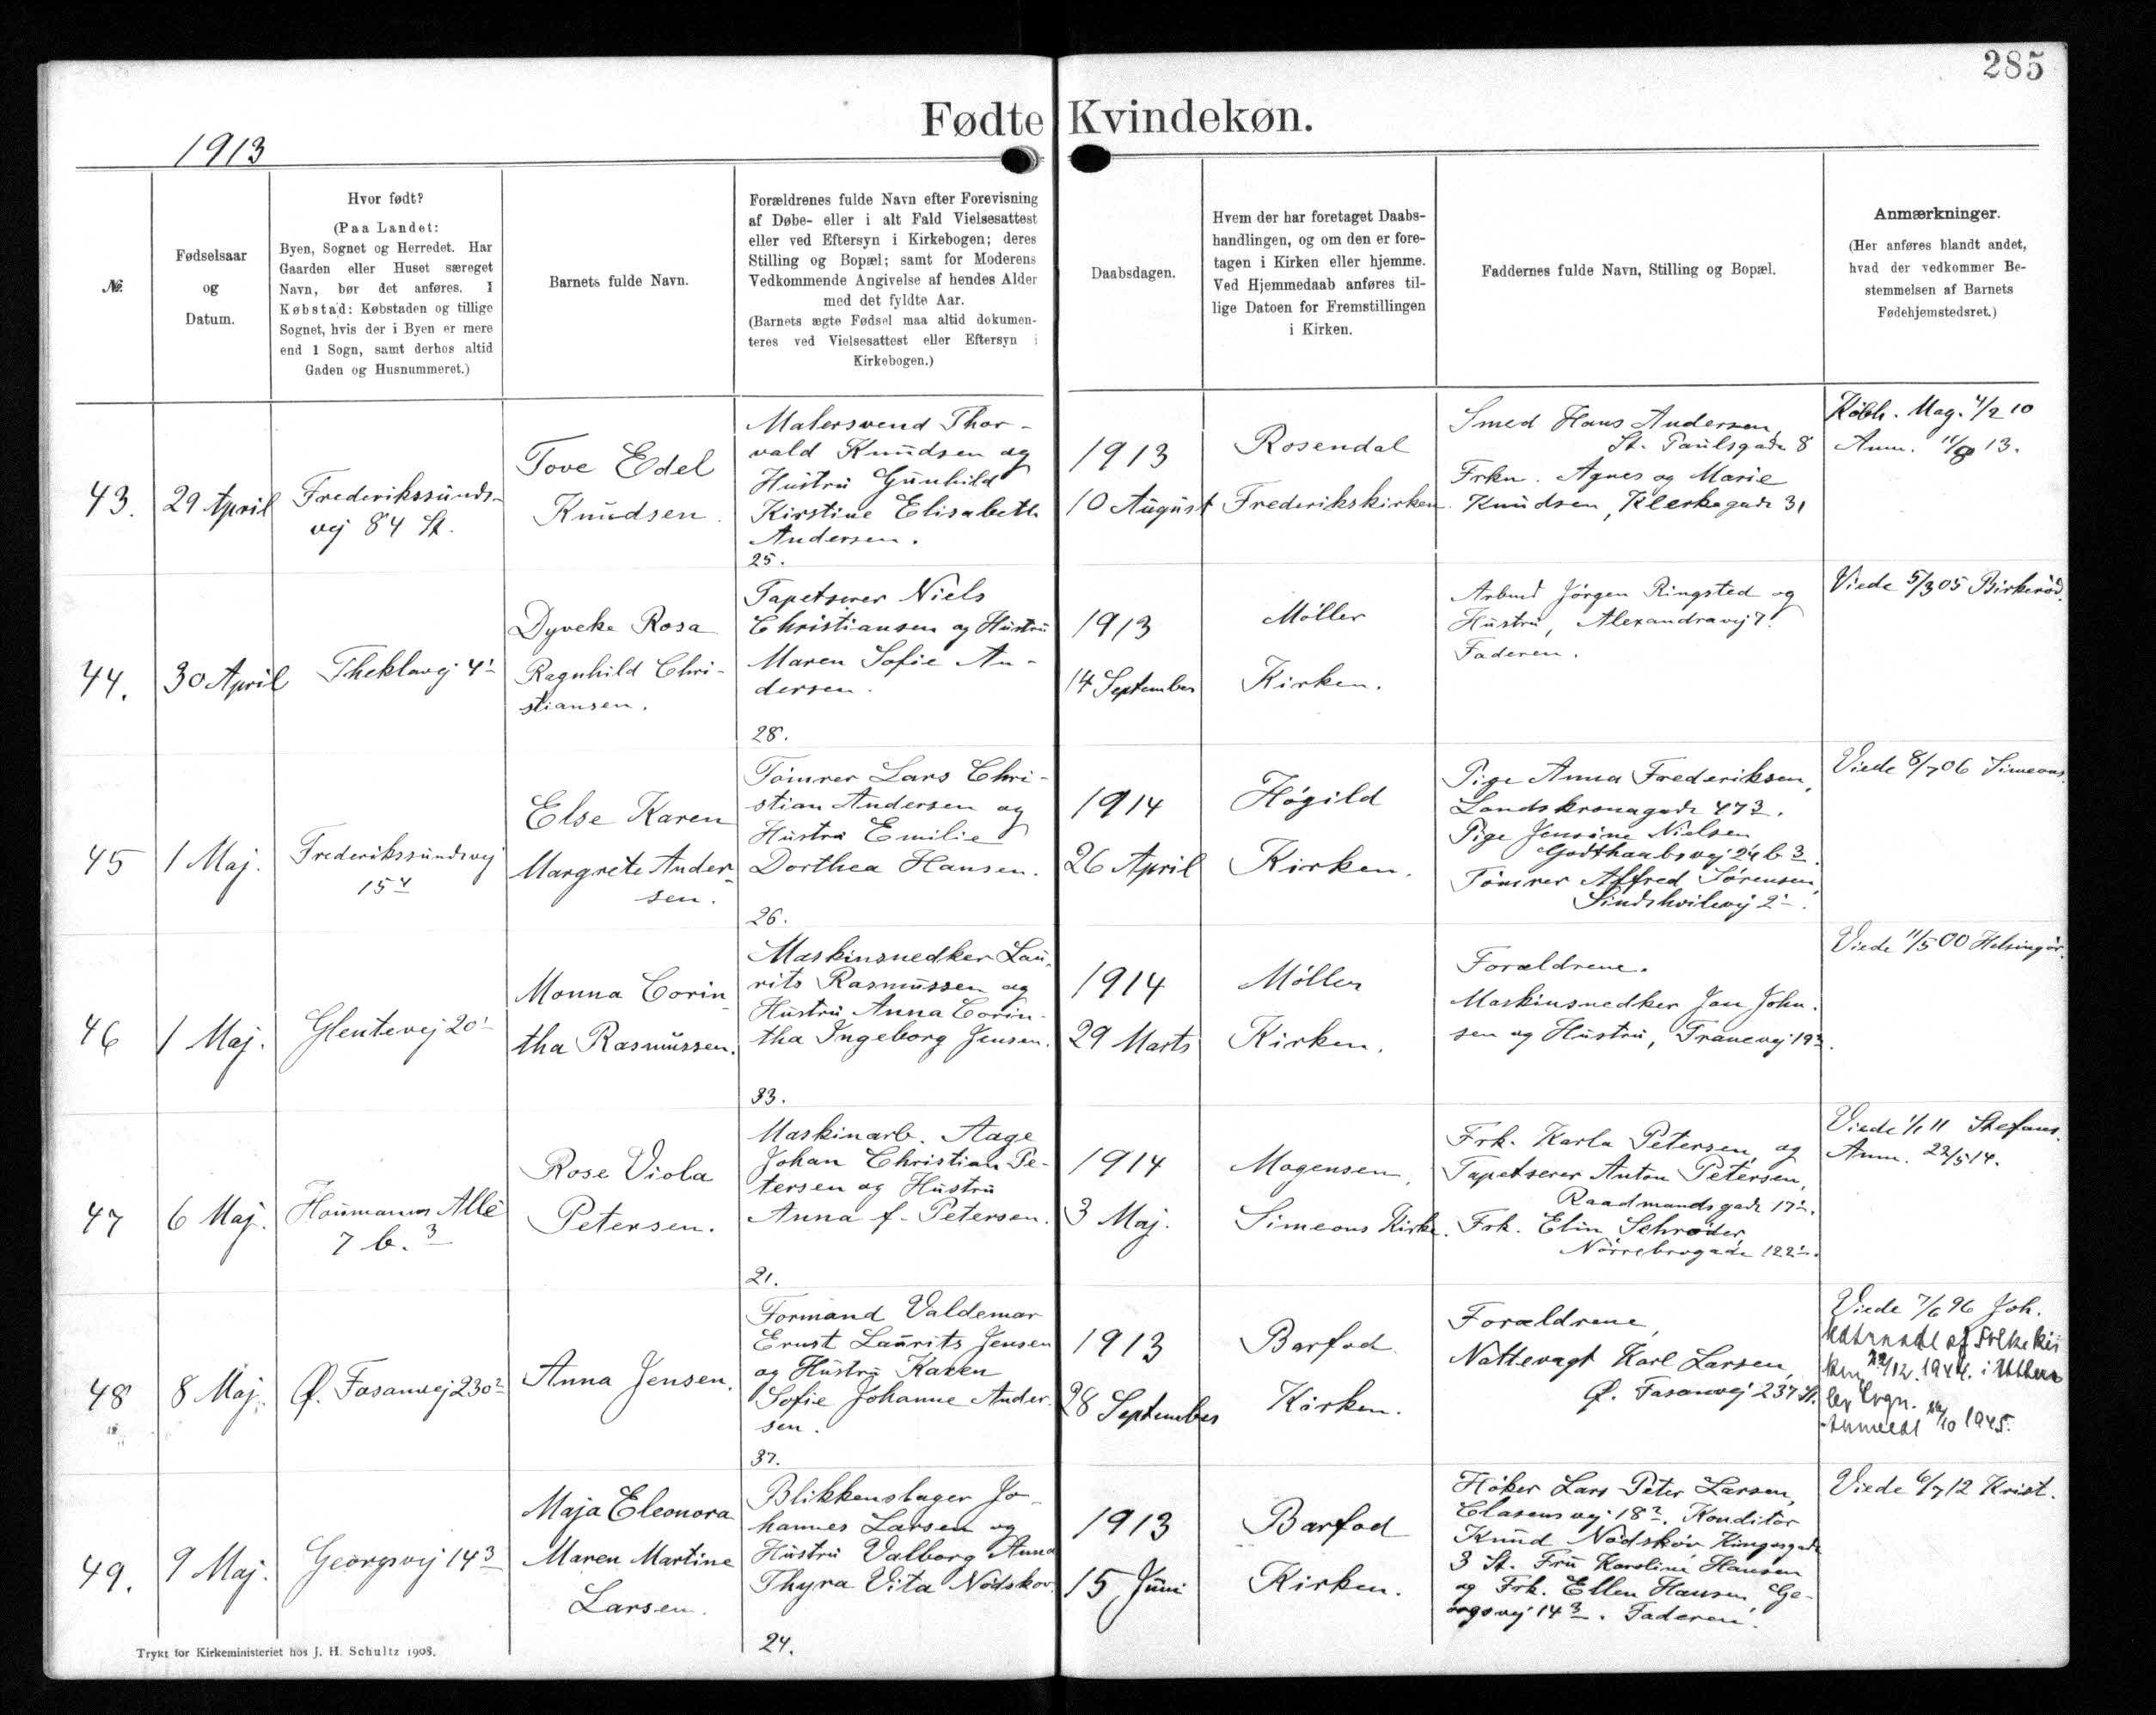 285
Fødte Kvindekøn.
1913
№
Fødselsaar
og
Datum.
Hvor født?
(Paa Landet:
Byen, Sognet og Herredet. Har
Gaarden eller Huset særeget
Navn, bør det anføres. I
Købstad: Købstaden og tillige
Sognet, hvis der i Byen er mere
end 1 Sogn, samt derhos altid
Gaden og Husnummeret.)
Barnets fulde Navn.
Forældrenes fulde Navn efter Forevisning
af Døbe- eller i alt Fald Vielsesattest
eller ved Eftersyn i Kirkebogen; deres
Stilling og Bopæl; samt for Moderens
Vedkommende Angivelse af hendes Alder
med det fyldte Aar.
(Barnets ægte Fødsel maa altid dokumen-
teres ved Vielsesattest eller Eftersyn i
Kirkebogen.)
Daabsdagen.
Hvem der har foretaget Daabs-
handlingen, og om den er fore-
tagen i Kirken eller hjemme.
Ved Hjemmedaab anføres til-
lige Datoen for Fremstillingen
i Kirken.
Faddernes fulde Navn, Stilling og Bopæl.
Anmærkninger.
(Her anføres blandt andet,
hvad der vedkommer Be-
stemmelsen af Barnets
Fødehjemstedsret.)
43.
29 April
Frederikssunds-
vej 84 St.
Tove Edel
Knudsen.
Malersvend Thor-
vald Knudsen og
Hustru Gunhild
Kirstine Elisabeth
Andersen.
25.
1913
10 August
Rosendal
Frederikskirken.
Smed Hans Andersen,
St. Paulsgade 8
Frkn. Agnes og Marie
Knudsen, Klerkegade 31
Købh. Mag. 4/2 10
Anm. 11/8 13.
44.
30 April
Theklavej 4¹
Dyveke Rosa
Ragnhild Chri-
stiansen.
Tapetserer Niels
Christiansen og Hustru
Maren Sofie An-
dersen.
28.
1913
14 September
Møller
Kirken.
Arbmd Jørgen Ringsted og
Hustru, Alexandravej 7.
Faderen.
Viede 5/3 05 Birkerød.
45
1 Maj.
Frederikssundsvej
15⁴
Else Karen
Margrete Ander-
sen.
Tømrer Lars Chri-
stian Andersen og
Hustru Emilie
Dorthea Hansen.
26.
1914
26 April
Høgild
Kirken.
Pige Anna Frederiksen,
Landskronagade 47³.
Pige Jensine Nielsen
Godthaabsvej 24 b³.
Tømrer Alfred Sørensen,
Lindshvilevej 2¹.
Viede 8/7 06 Simeons.
46
1 Maj.
Glentevej 20¹
Monna Corin-
tha Rasmussen.
Maskinsnedker Lau-
rits Rasmussen og
Hustru Anna Corin-
tha Ingeborg Jensen.
33.
1914
29 Marts
Møller
Kirken.
Forældrene.
Maskinsnedker Jan John-
sen og Hustru, Tranevej 19³.
Viede 11/5 00 Helsingør.
47
6 Maj.
Houmanns Allé
7 b.³
Rose Viola
Petersen.
Maskinarb. Aage
Johan Christian Pe-
tersen og Hustru
Anna f. Petersen.
21.
1914
3 Maj.
Mogensen,
Simeons Kirke.
Frk. Karla Petersen, og
Tapetserer Anton Petersen,
Raadmandsgade 17¹.
Frk. Elin Schrøder,
Nørrebrogade 122¹.
Viede 1/1 11 Stefans.
Anm. 22/5 14.
48
8 Maj.
Ø. Fasanvej 230²
Anna Jensen.
Formand Valdemar
Ernst Laurits Jensen
og Hustru Karen
Sofie Johanne Ander-
sen.
37.
1913
28 September
Barfod
Kirken.
Forældrene,
Nattevagt Karl Larsen,
Ø. Fasanvej 237 St.
Viede 7/6 96 Joh.
Udtraadt af Folkekir
ken /12. 1944. i Utters
lev Sogn.
Anmeldt /10 1945.
49.
9 Maj.
Georgsvej 14³
Maja Eleonora
Maren Martine
Larsen.
Blikkenslager Jo-
hannes Larsen og
Hustru Valborg Anna
Thyra Vita Nødskov.
24.
1913
15 Juni
Barfod
Kirken.
Høker Lars Peter Larsen,
Clasensvej 18². Konditor
Knud Nødskov Kingosgade
3 St. Fru Karoline Hansen
og Frk. Ellen Hansen, Ge-
orgsvej 14³. Faderen.
Viede 6/7 12 Krist.
Trykt for Kirkeministeriet hos J. H. Schultz 1908.